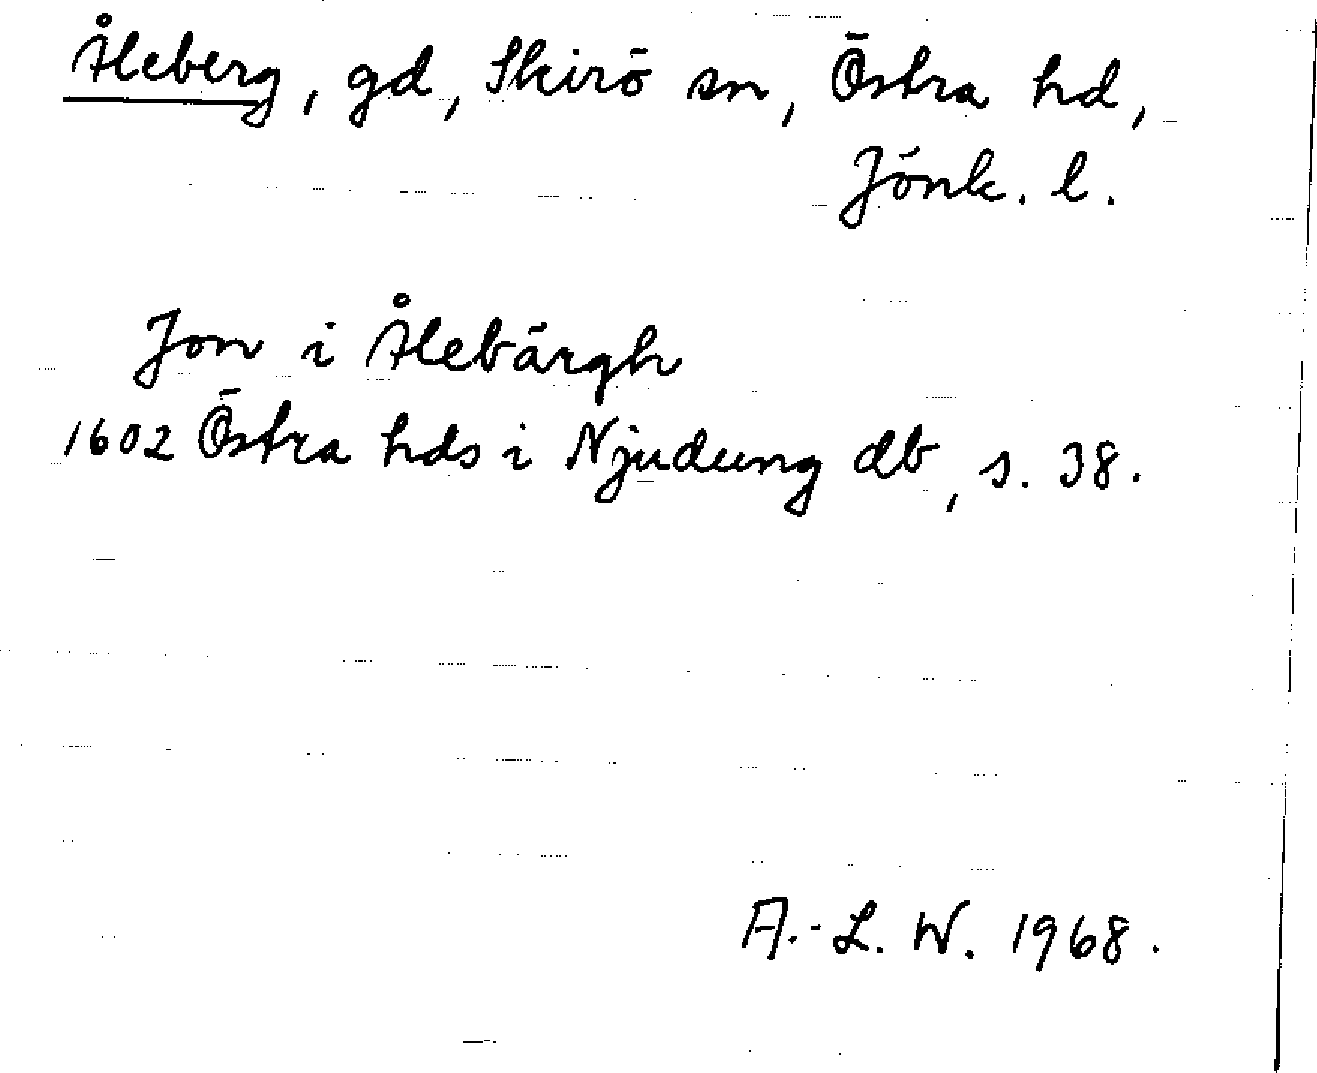 Åleberg, gd, Skirö sn, Östra hd,
Jönk. l.
Jon i Ålebärgh
1602 Östra hds i Njudung db, s. 38.
A.-L. W. 1968.